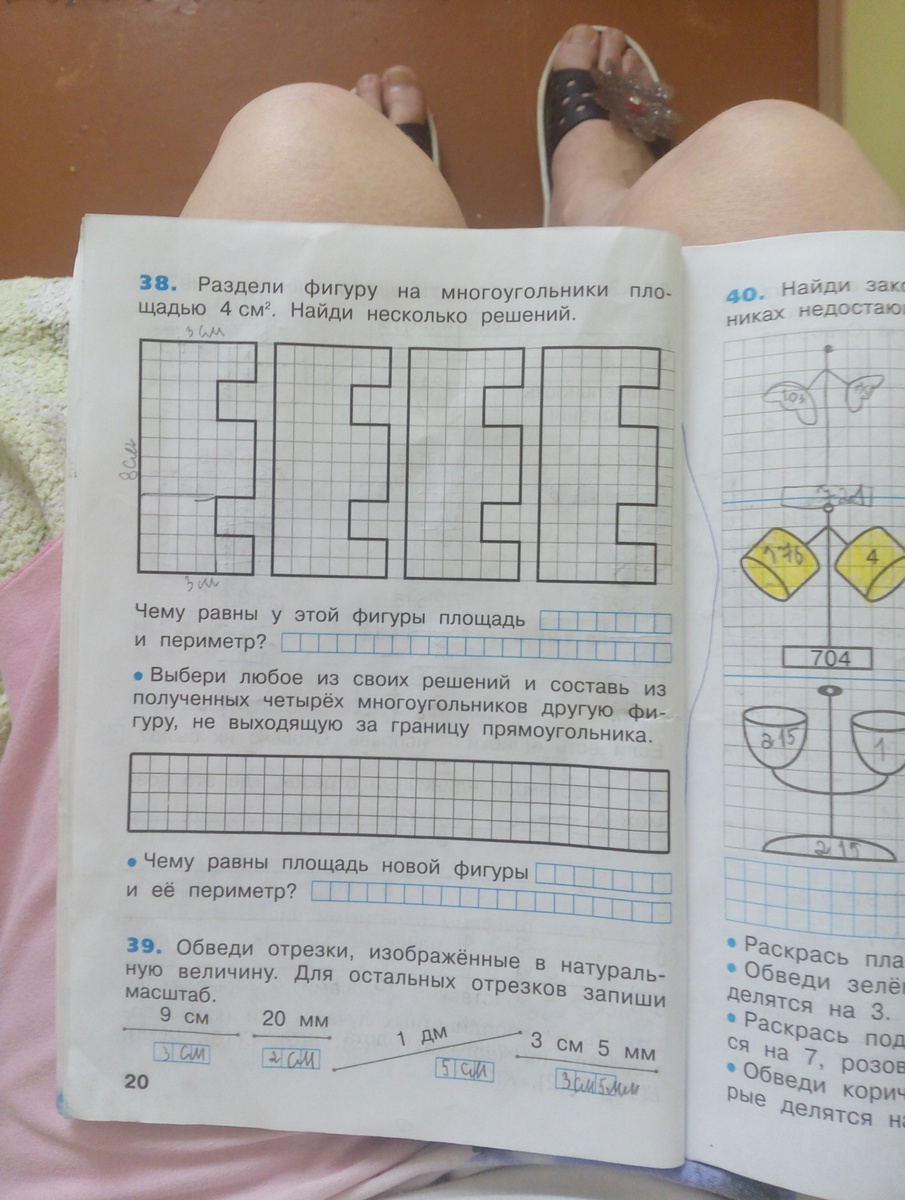 38. Раздели фигуру на многоугольники пло-
щадью 4 см². Найди несколько решений.
3 см
8 см
3 см
Чему равны у этой фигуры площадь
и периметр?
• Выбери любое из своих решений и составь из
полученных четырёх многоугольников другую фи-
гуру, не выходящую за границу прямоугольника.
• Чему равны площадь новой фигуры
и её периметр?
39. Обведи отрезки, изображённые в натураль-
ную величину. Для остальных отрезков запиши
масштаб.
9 см 20 мм 1 дм 3 см 5 мм
3 см 2 см 5 см 3 см 5 мм
20
40. Найди зако
никах недостаю
103
176 4
704
215 1
215
• Раскрась пла
• Обведи зелё
делятся на 3.
• Раскрась под
ся на 7, розов
• Обведи корич
рые делятся на